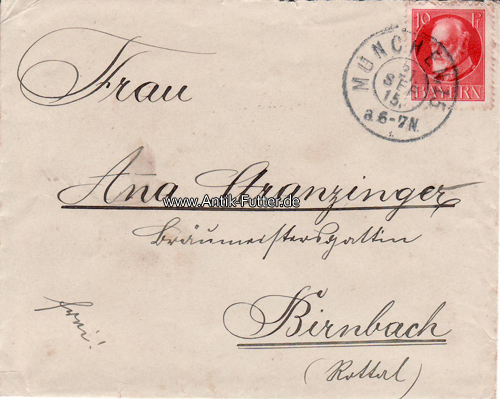 10 Pf
BAYERN
MÜNCHEN
SEP
15.
a.6-7N.
Frau
Ana Granzinger
www.Antik-Futter.de
Bräumeistersgattin
frei!
Birnbach
(Rottal)